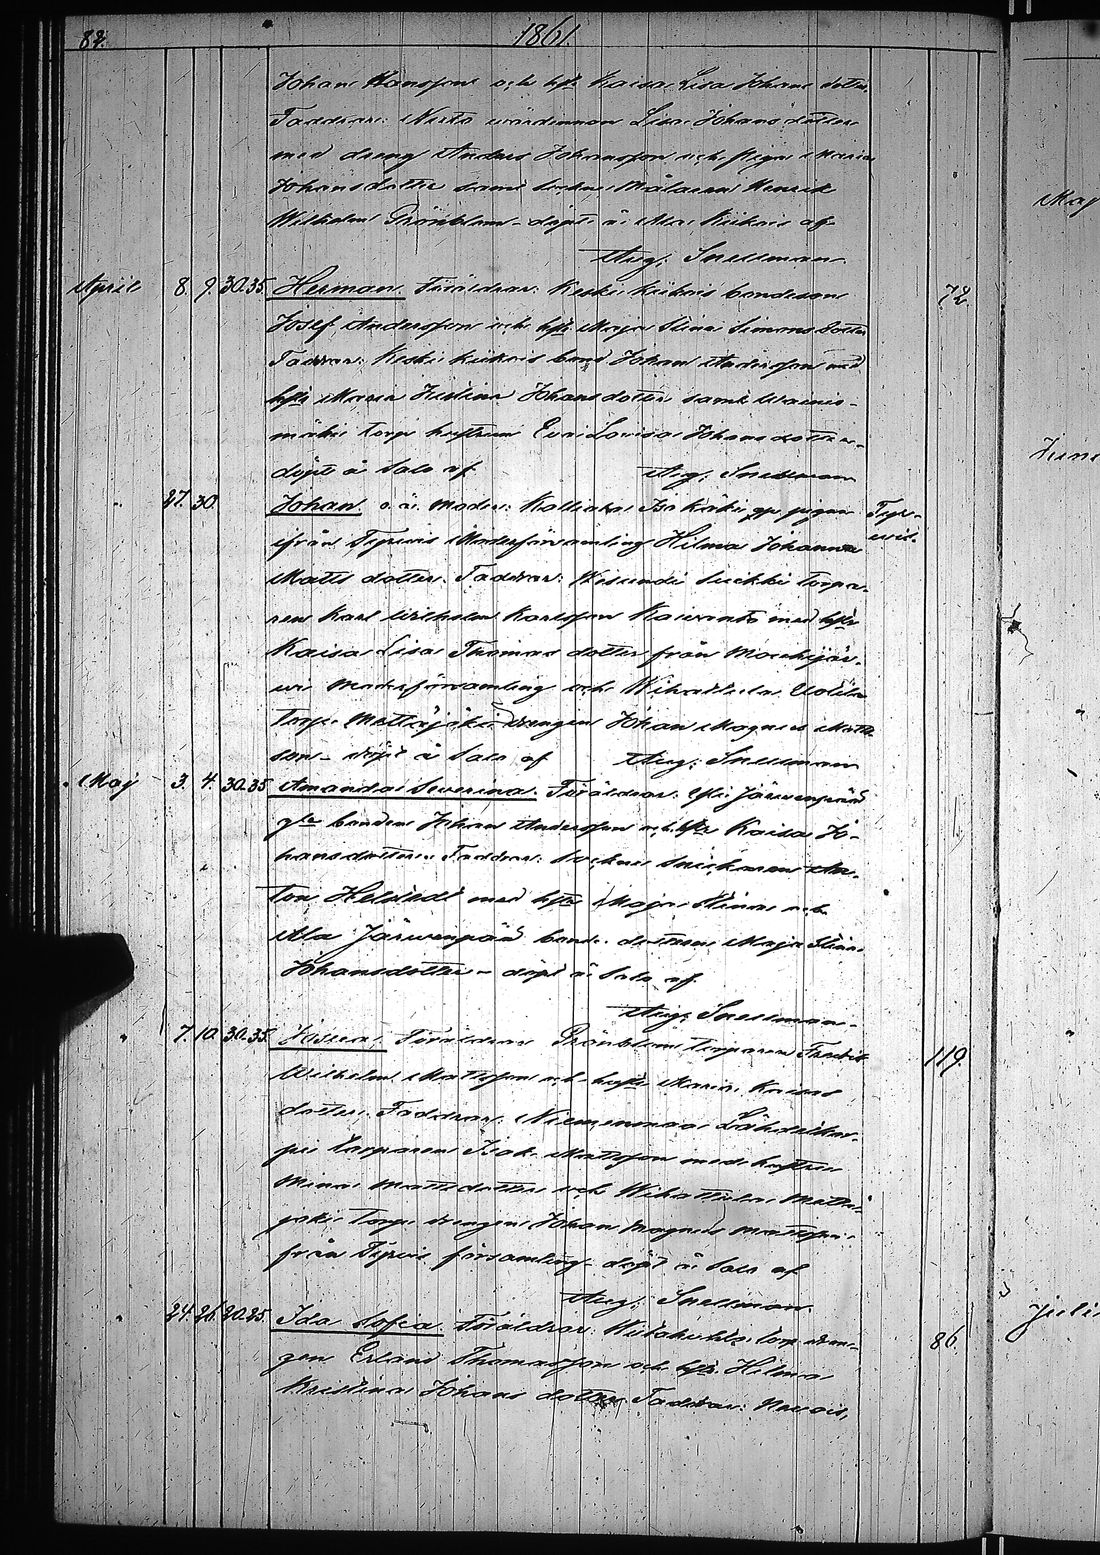 82. 1861.
Johan Hansson och hst. Kaisa Lisa Johans dotter
Faddrar: wärdinnan Lisa Johans dotter
med dreng Anders Johansson och pigan Maria
Johansdotter samt Socken Målaren Henrik
Wilhelm Grönblom - döpt å Ala Kiikois af
Aug. Snellman
April 8. 9. 30.35. Herman. Föräldrar: Keski Kiikois bondeson 72.
Josef Andersson och hst. Maja Stina Simons dotter
Faddrar: Keski Kiikois bond Johan Andersson med
hst. Maria Kristina Johans dotter samt
mäki torp hustrun Eva Lovisa Johans dotter -
döpt å Sals af Aug. Snellman
" 27. 30. Johan. o.ä. Moder: pigan Tyr-
ifrån Tyrvis Moderförsamling Hilma Johanna wis.
Matts dotter. Faddrar: torpa-
ren Karl Wilhelm Karlsson med hst.
Kaisa Lisa Thomas dotter från Mouhijär-
wi Moderförsamling och Wihattula
Torp. drengen Johan Magnus Matts-
son - döpt å Sals af Aug. Snellman
Maj 3. 4. 30.35 Amanda Severina. Föräldrar: Yli Järwenpää
bonden Johan Andersson och hst. Kaisa Jo-
hansdotter. Faddrar: Socken Snickaren An-
ton Helstedt med hst. Maja Stina och
Ala Järwenpää bond. dottern Maja Stina
Johansdotter - döpt å Sals af
Aug. Snellman -
" 7. 10. 30.35. Föräldrar Grönblom torparen Fredrik 119.
Wilhelm Mattsson och hust. Maria Kaisas
dotter. Faddrar: Niemenmaa
torparen Isak Mattsson med hustru
Mina Mattsdotter och Wihattula
torp. drengen Johan Magnus Mattsson
från Tyrvis församling - döpt å Sals af
Aug. Snellman
" 24. 26. 20.25. Ida Sofia. Föräldrar: torp dren- 86.
gen Erland Thomasson och hst. Hilma
Kristina Johans dotter Faddrar:
Maj
Juni
"
"
Juli